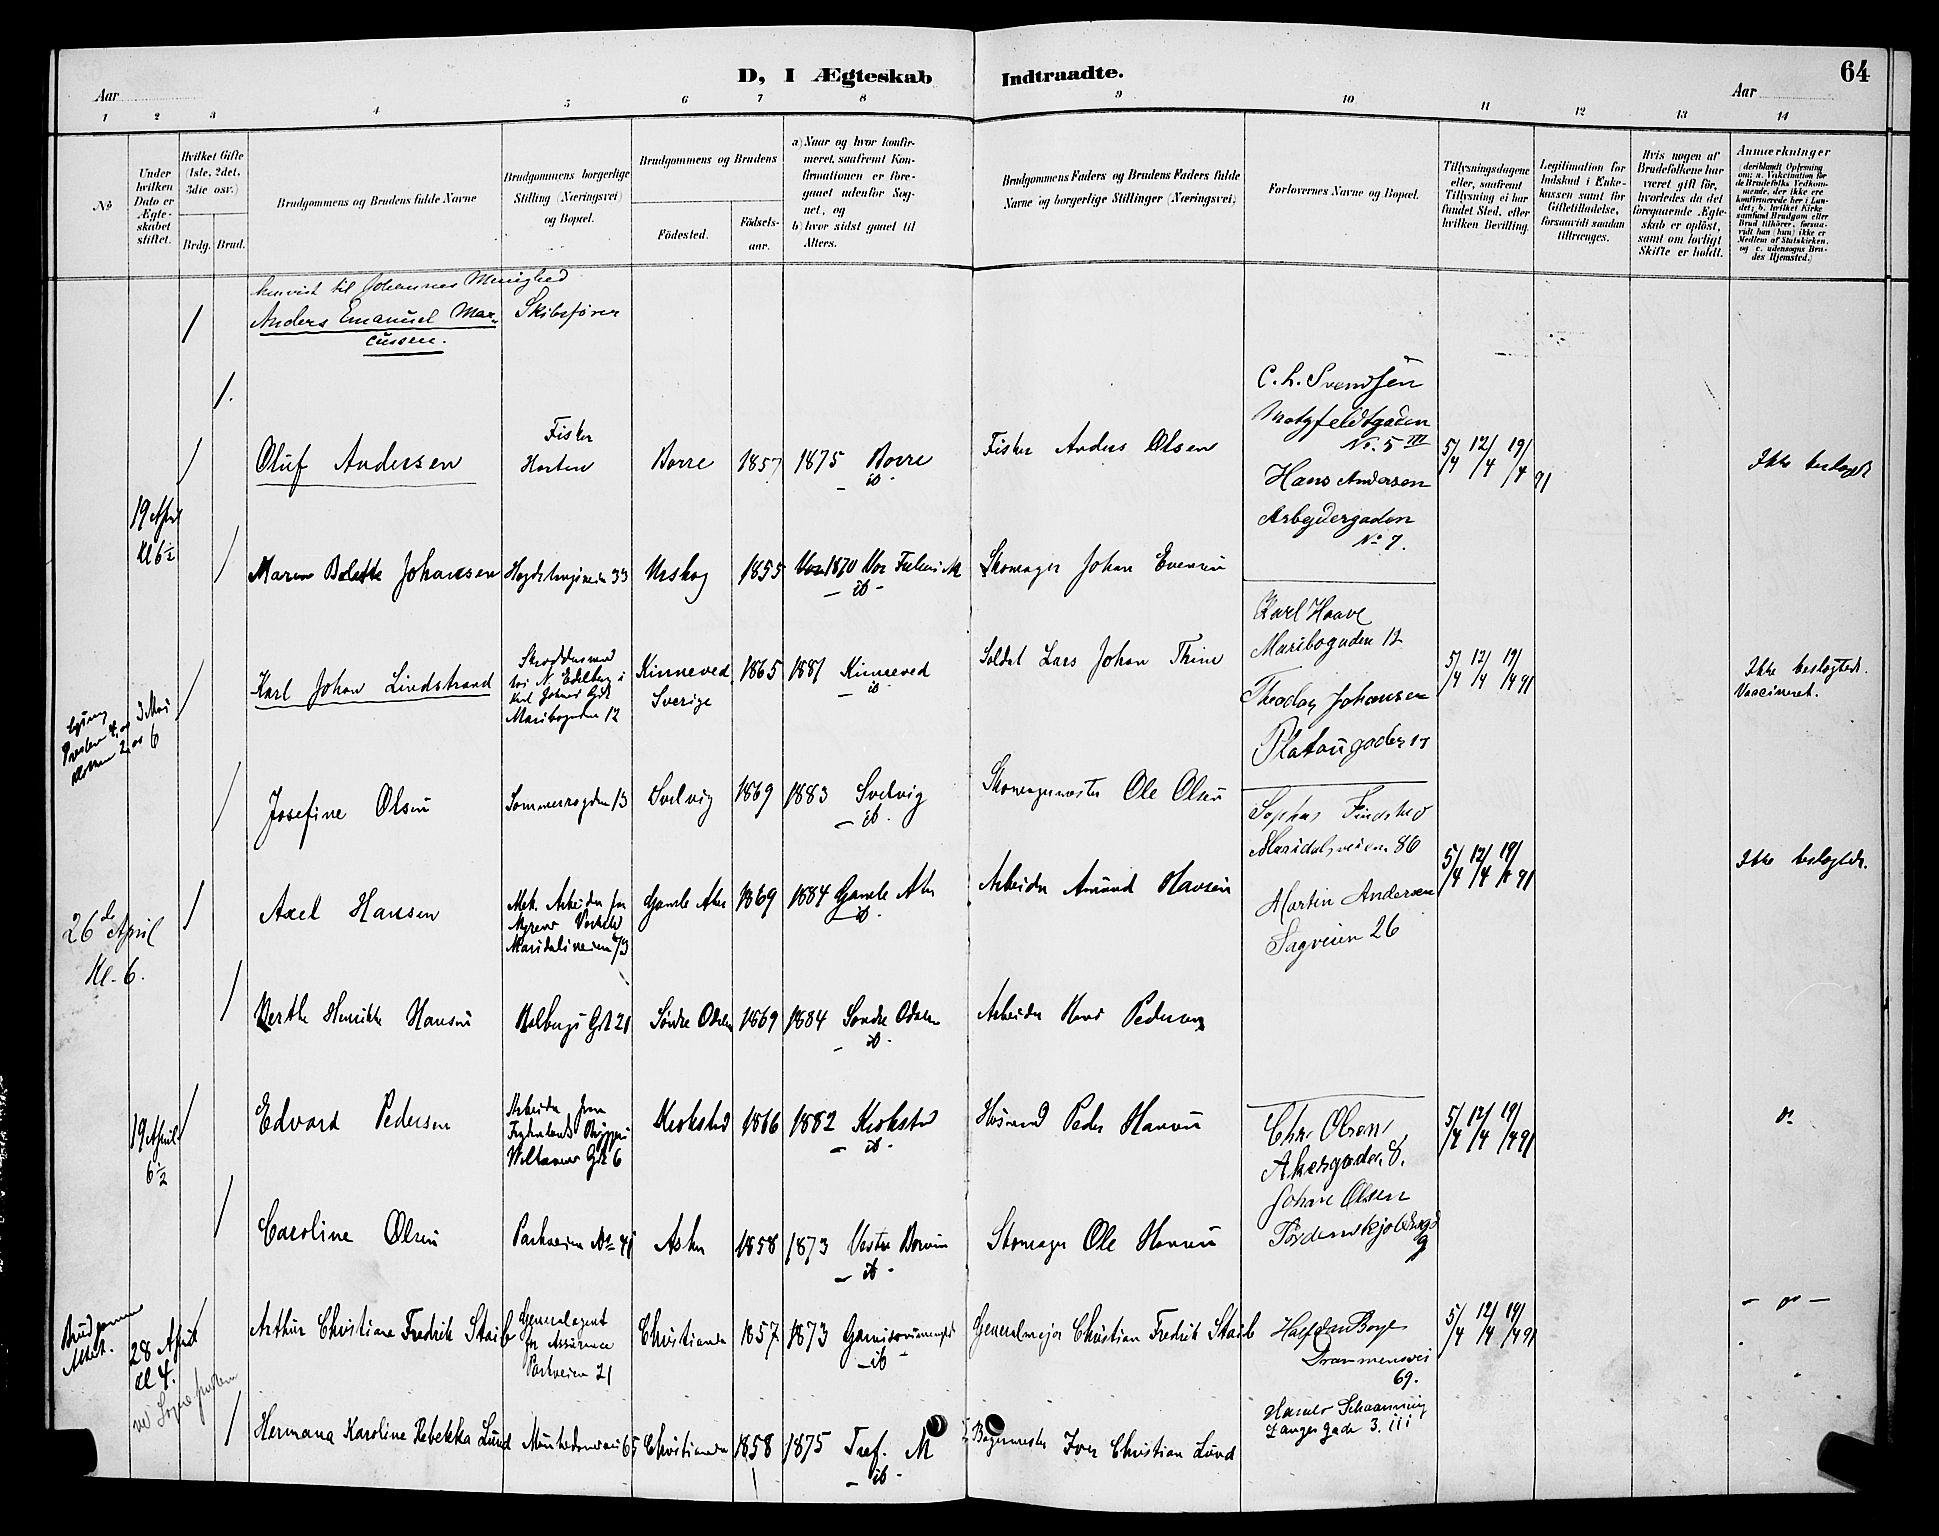 D, I Ægteskab Indtraadte.
64
Aar
Aar
1 2 3 4 5 6 7 8 9 10 11 12 13 14
No
Under hvilken Dato er Ægteskabet stiftet.
Hvilket Gifte (1ste, 2det, 3die osv.)
Brdg. Brud.
Brudgommens og Brudens fulde Navne
Brudgommens borgerlige Stilling (Næringsvei) og Bopæl.
Brudgommens og Brudens
Fødested.
Fødselsaar.
a) Naar og hvor konfirmeret, saafremt Konfirmationen er foregaaet udenfor Sognet, og
b) hvor sidst gaaet til Alters.
Brudgommens Faders og Brudens Faders fulde Navne og borgerlige Stillinger (Næringsvei)
Forlovernes Navne og Bopæl.
Tillysningsdagene eller, saafremt Tillysning ei har fundet Sted, efter hvilken Bevilling.
Legitimation for Indskud i Enkekassen samt for Giftetilladelse, forsaavidt saadan tiltrænges.
Hvis nogen af Brudefolkene har været gift før, hvorledes da det foregaaende Ægteskab er opløst, samt om lovligt Skifte er holdt.
Anmærkninger
til Johannes Menighed
Anders Emanuel Marcussen.
Skibsfører
C. L. Svendsen
No. 5 III
Oluf Andersen
Fisker
Horten
Borre
1857
1875 Borre
- ib -
Fisker Anders Olsen
Hans Andersen
Arbeydergaden
No 7.
5/4 12/4 19/4 91
Ikke beslægt
19 April
Kl 6½
Maren Johansen
33
Urskog
1855
1870 Vor Frelsers M
- ib -
Skomager Johan Evensen
Karl Haave
Maribogaden 12
3 Mai
Karl Johan Lindstrand
Karl Johans Gd
Maribogaden 12
Kinneved
Sverige
1865
1881 Kinneved
- ib
Soldat Lars Johan
Theodor Johansen
Platougaden
5/4 12/4 19/4 91
Ikke beslægtede.
Vaccineret.
Josefine Olsen
13
Svelvig
1869
1883 Svelvig
- ib.
Skomagermester Ole Olsen
Sophus
Maridalsveien 86
26de April
Kl. 6.
Axel Hansen
Mek. Arbeider
Maridalsveien 73
Gamle Aker
1869
1884 Gamle Aker
ib.
Arbeider Amund Hansen
Martin Andersen
Sagveien 26
5/4 12/4 19/4 91
Ikke beslægtede.
Berthe Henrikke Hansen
Holbergs Gd 21
Søndre Odalen
1869
1884 Søndre Odalen
- ib -
Arbeider Hans Pedersen
19 April
6½
Edvard Pedersen
Arbeider
Gd 6
Krokstad
1866
1882 Krokstad
- ib -
Husmand Peder Hansen
Chr. Olsen
Akersgaden 8.
5/4 12/4 19/4 91
do
Caroline Olsen
Parkveien No 41
Asker
1858
1873 Vestre Bærum
- ib -
Skomager Ole Hansen
Johan Olsen
Tordenskjoldsgd
9
28 April
Kl 4.
Arthur Christian Fredrik Staib
Generalagent
for Assurance
Parkveien 21
Christiania
1857
1873 Garnisonsmenighed
- ib -
Generalmajor Christian Fredrik Staib
Halfdan Boye
Drammensvei
69.
5/4 12/4 19/4 91
- do -
Hermana Karoline Rebekka Lund
Munkedamsveien 65
Christiania
1858
1875 Tref. M
- ib -
Bagermester Iver Christian Lund
Schaanning
Langes Gade 3. III